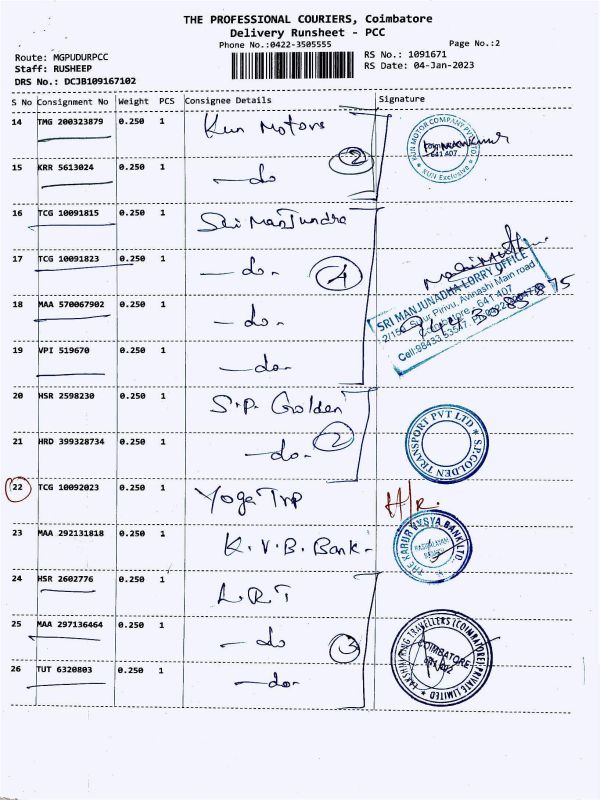 THE PROFESSIONAL COURIERS, Coimbatore
Delivery Runsheet - PCC
Phone No.:0422-3505555
Page No.:2
Route: MGPUDURPCC
Staff: RUSHEEP
DRS No.: DCJB109167102
RS No.: 1091671
RS Date: 04-Jan-2023
S No Consignment No Weight PCS Consignee Details Signature
14 TMG 200323879 0.250 1 Kun Motors
KUN MOTOR COMPANY PVT LTD
641 407
KUN Exclusive
15 KRR 5613024 0.250 1 —do 2
16 TCG 10091815 0.250 1 Sri Manjundra
17 TCG 10091823 0.250 1 —do- 4
SRI MANJUNADHA LORRY OFFICE
Pirivu, Avinashi Main road
Coimbatore - 641 407
Cell:98433 53547
18 MAA 570067902 0.250 1 —do-
19 VPI 519670 0.250 1 —do-
20 HSR 2598230 0.250 1 S.P. Golden
21 HRD 399328734 0.250 1 —do- 2
S.P.GOLDEN TRANSPORT PVT LTD
22 TCG 10092023 0.250 1 Yoga Trp H/R.
23 MAA 292131818 0.250 1 K.V.B. Bank-
THE KARUR VYSYA BANK LTD.
24 HSR 2602776 0.250 1 L.R.T
25 MAA 297136464 0.250 1 —do 3
LAKSHMI RING TRAVELLERS (COIMBATORE) PRIVATE LIMITED
COIMBATORE
26 TUT 6320803 0.250 1 —do-